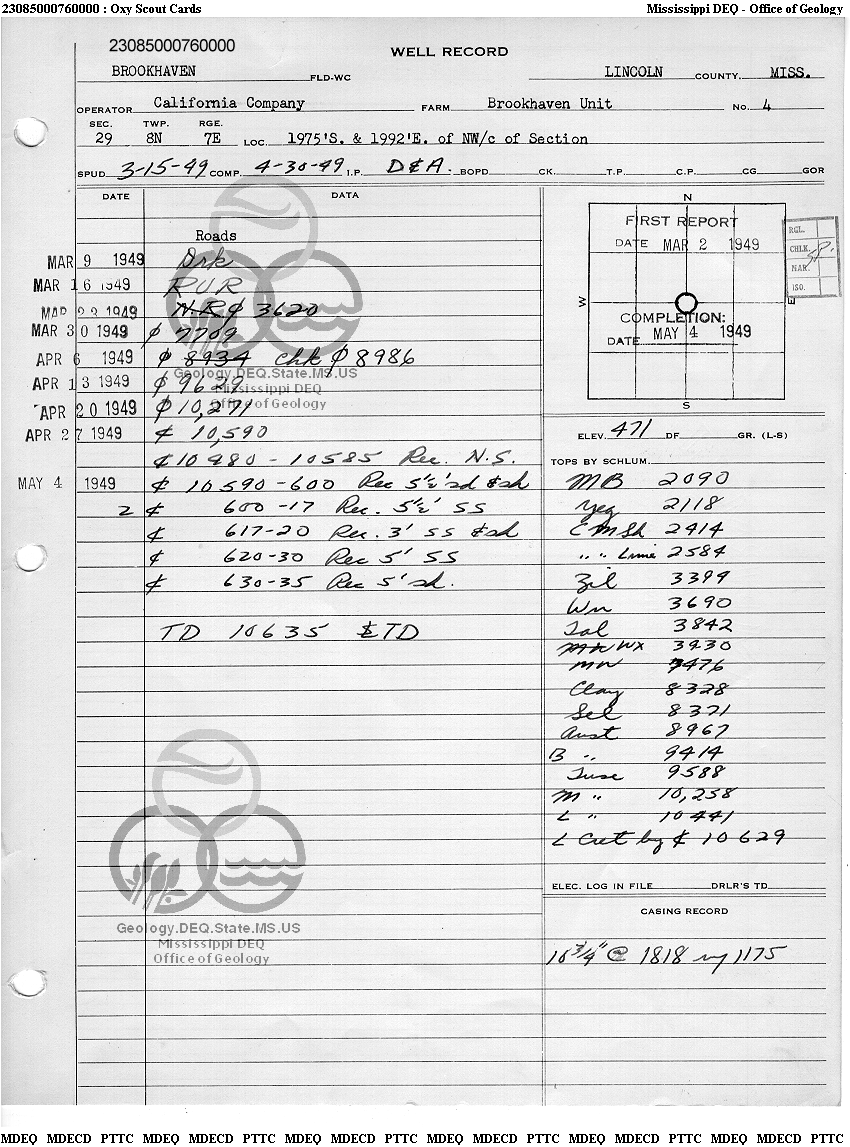 23085000760000 : Oxy Scout Cards Mississippi DEQ - Office of Geology
23085000760000
WELL RECORD
BROOKHAVEN FLD-WC LINCOLN COUNTY, MISS.
OPERATOR California Company FARM Brookhaven Unit No. 4
SEC. TWP. RGE.
29 8N 7E LOC. 1975'S. & 1992'E. of NW/c of Section
SPUD 3-15-49 COMP. 4-30-49 I.P. D&A. BOPD CK. T.P. C.P. CG GOR
DATE DATA
Roads
MAR 9 1949 Drk
MAR 16 1949 RUR
MAR 23 1949 N.R. ₵ 3620
MAR 30 1949 ₵ 7709
APR 6 1949 ₵ 8934 Chk ₵ 8986
APR 13 1949 ₵ 9629
APR 20 1949 ₵ 10,271
APR 27 1949 ₵ 10,590
₵ 10980-10585 Rec. N.S.
MAY 4 1949 ₵ 10590-600 Rec 5½' sd & sh
2 ₵ 600-17 Rec. 5½' SS
₵ 617-20 Rec. 3' SS & sd
₵ 620-30 Rec 5' SS
₵ 630-35 Rec 5' sd.
TD 10635 ₵TD
Geology.DEQ.State.MS.US
Mississippi DEQ
Office of Geology
Geology.DEQ.State.MS.US
Mississippi DEQ
Office of Geology
N
FIRST REPORT
DATE MAR 2 1949
W E
COMPLETION:
DATE MAY 4 1949
S
RGL.
CHLK.
NAR.
ISO.
ELEV. 471 DF GR. (L-S)
TOPS BY SCHLUM.
MB 2090
Yeg 2118
CM Sh 2414
" " Lime 2584
Zil 3399
Wn 3690
Sal 3842
WX 3930
MW 7476
Clay 8328
Sel 8371
Aust 8967
B " 9414
Tusc 9588
M " 10,258
L " 10441
L Cret by ₵ 10629
ELEC. LOG IN FILE DRLR'S TD
CASING RECORD
10 3/4" @ 1818 w/ 1175
MDEQ MDECD PTTC MDEQ MDECD PTTC MDEQ MDECD PTTC MDEQ MDECD PTTC MDEQ MDECD PTTC MDEQ MDECD PTTC MDEQ